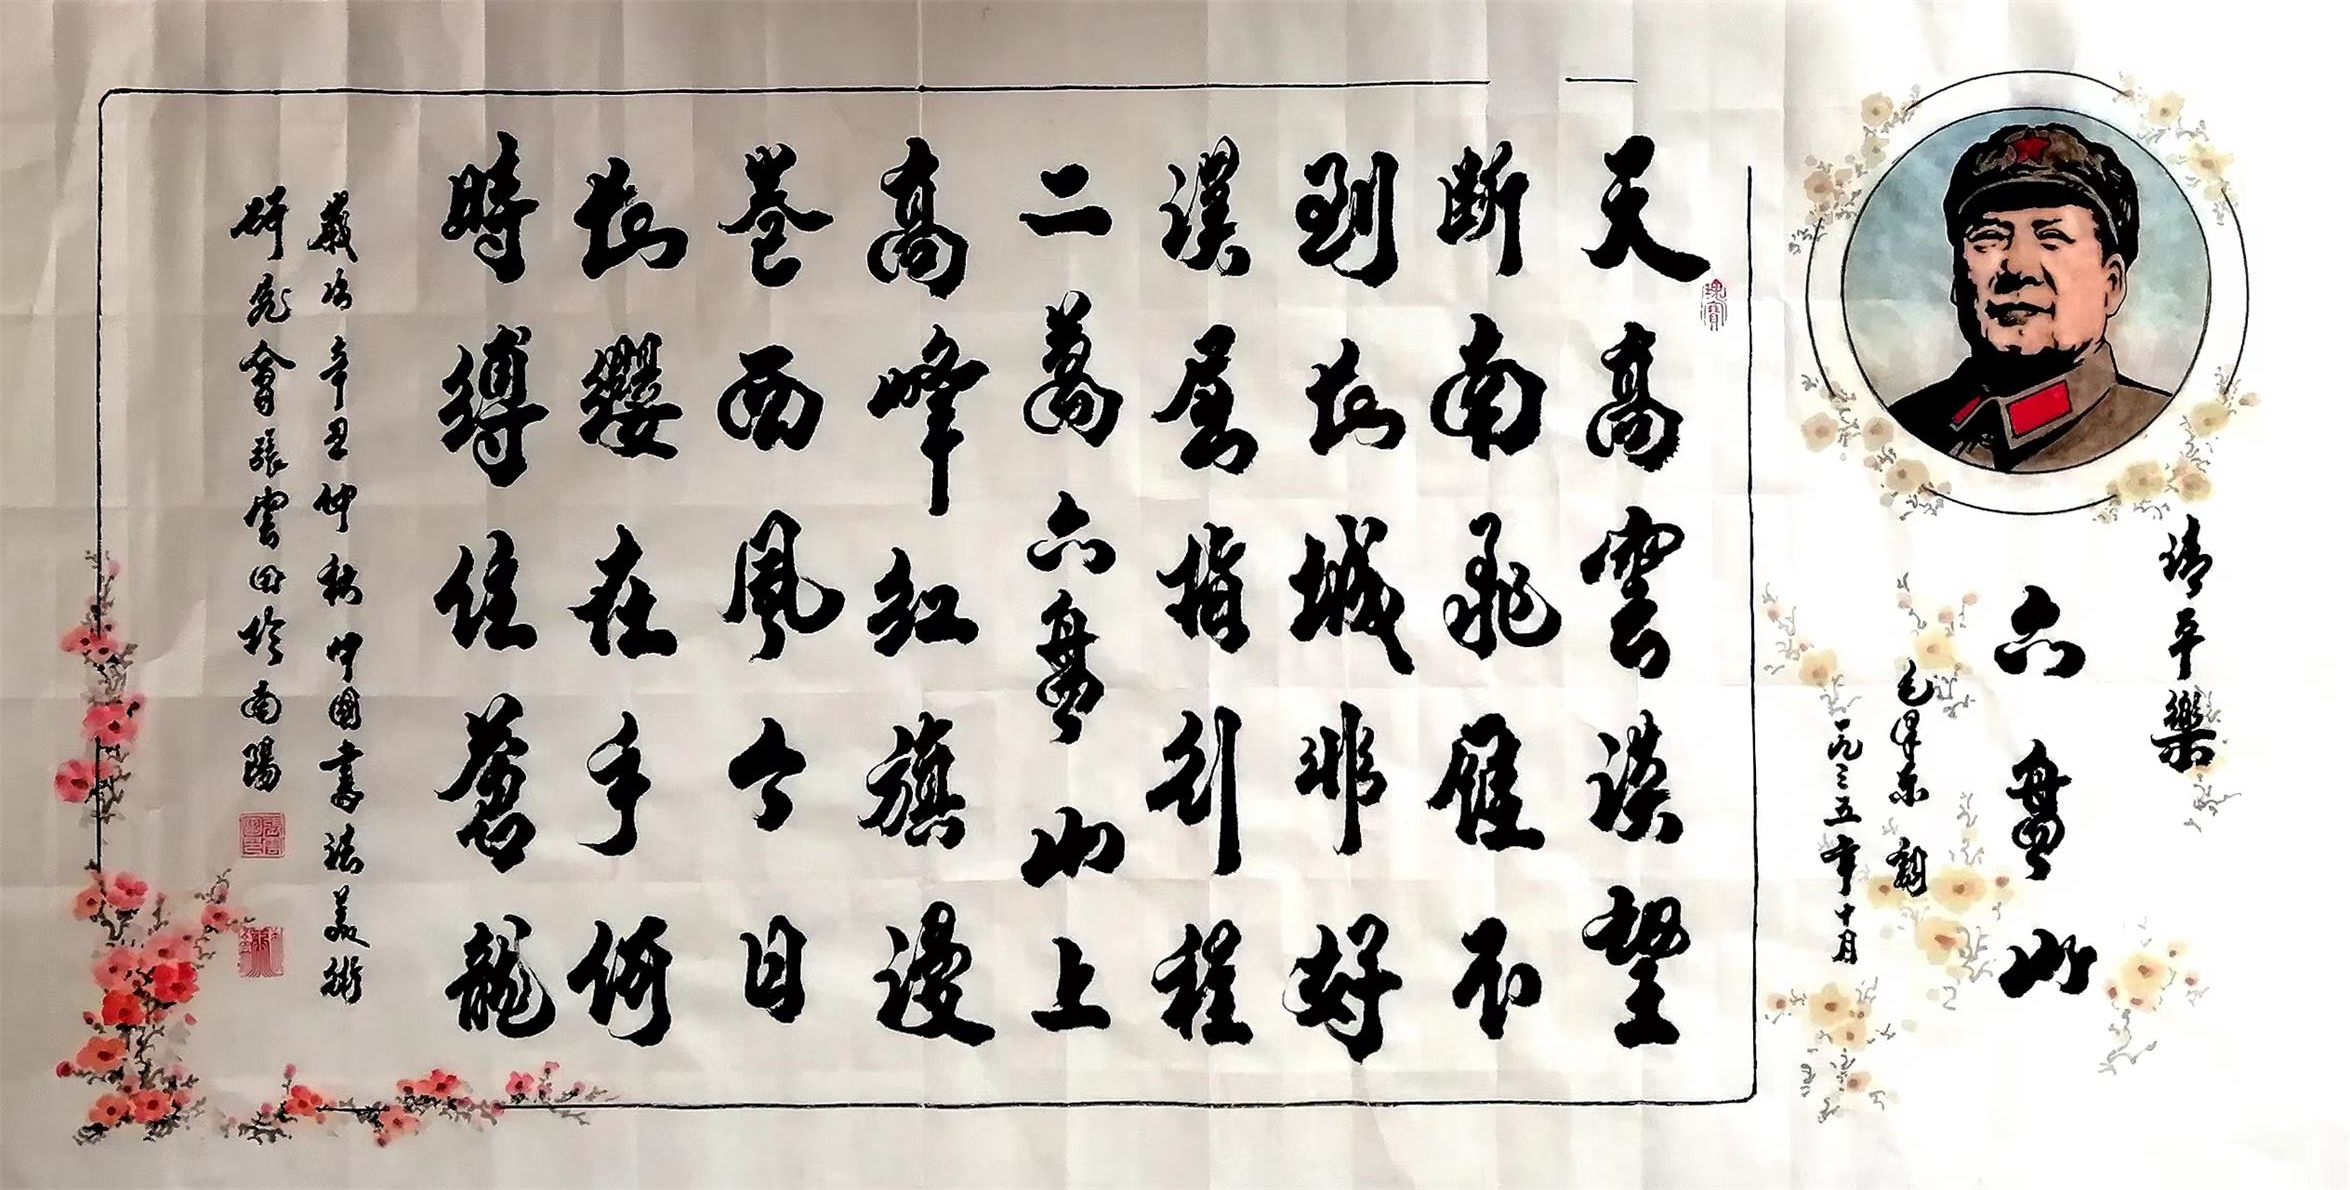 清平樂
六盤山
毛澤東 詞
一九三五年十月
瑰寶
天高雲淡望
斷南飛雁不
到長城非好
漢屈指行程
二萬六盤山上
高峰紅旗漫
卷西風今日
長纓在手何
時縛住蒼龍
歲次辛丑仲秋中國書法美術
研究會張雲田於南陽